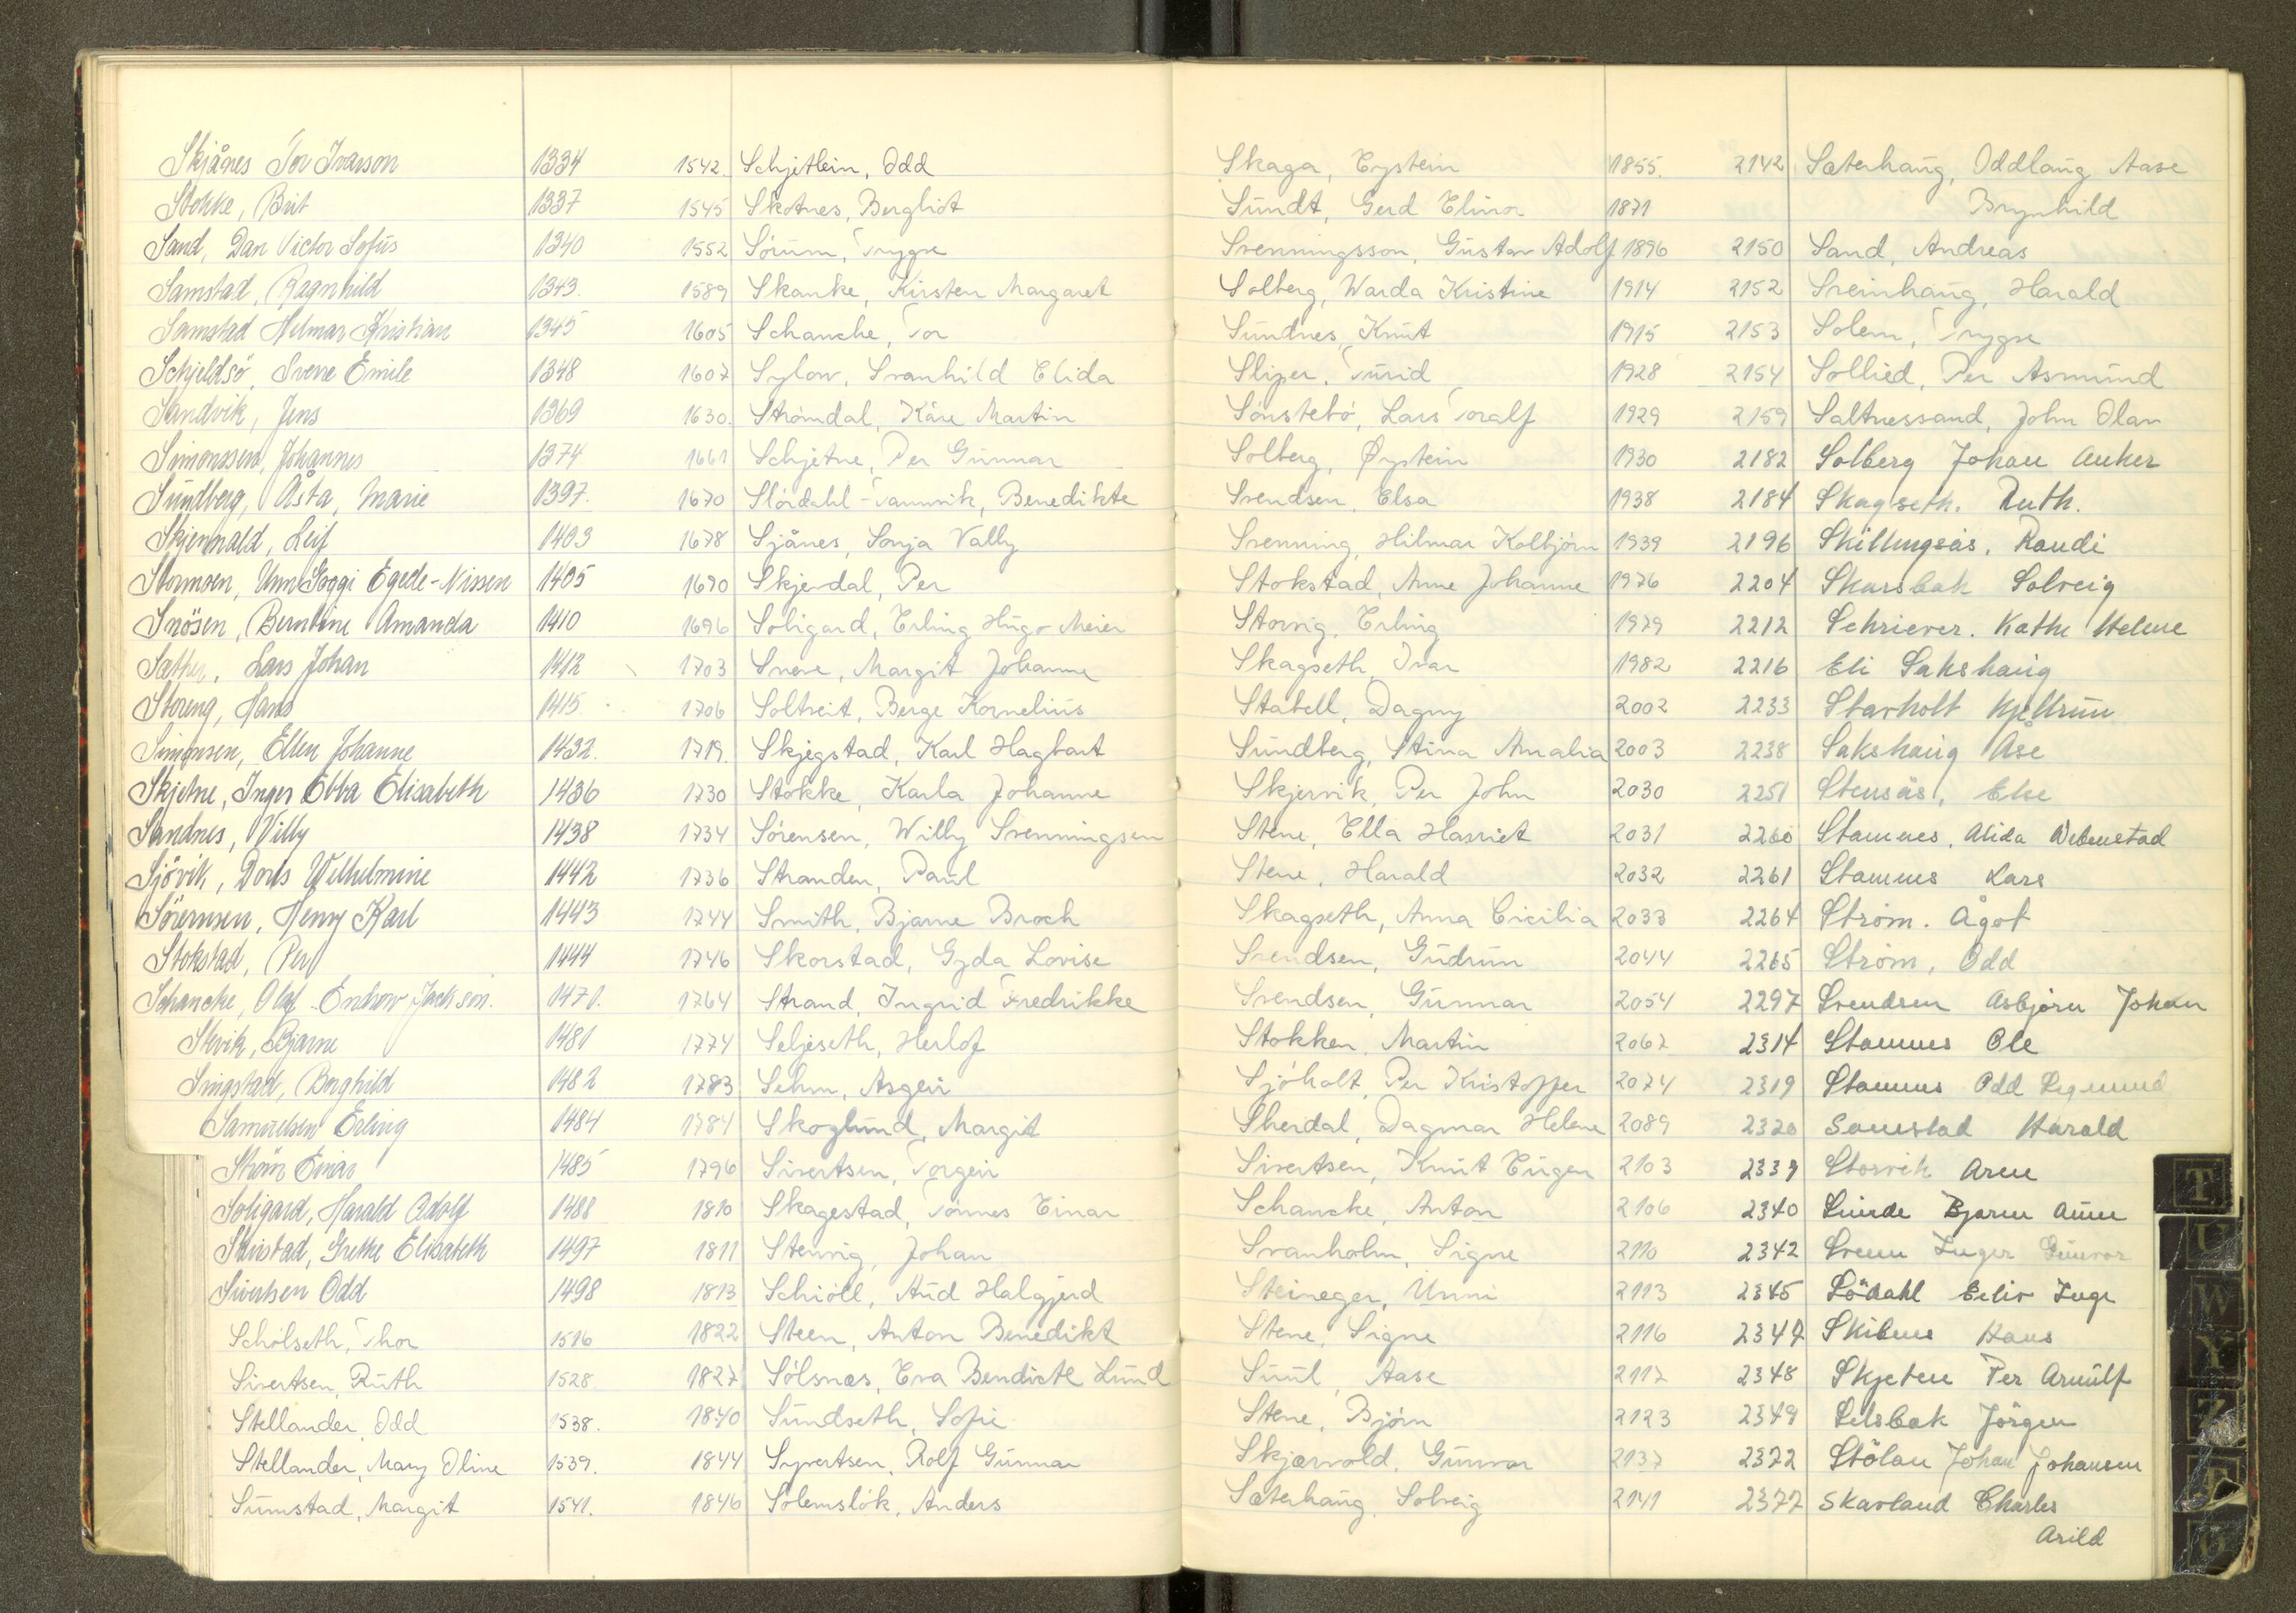 Skjånes Tor Ivarson 1334
Stokke, Brit 1337
Sand, Dan Victor Sofus 1340
Samstad, Ragnhild 1343
Samstad Hilmar Kristian 1345
Schjeldsö, Svene Emile 1348
Sandvik, Jens 1369
Simonssen, Johannes 1374
Sundberg, Åsta, Marie 1397.
Skjennald, Leif 1403
Stormoen, Unn Soggi Egede-Nissen 1405
Snösen, Berntine Amanda 1410
Sæther, Lars Johan 1412
Storeng, Hans 1415
Simonsen, Ellen Johanne 1432.
Skjetne, Inger Ebba Elisabeth 1436
Sandnes, Villy 1438
Sjövik, Doris Wilhelmine 1442
Sörensen, Henry Karl 1443
Stokstad, Per 1444
Schancke, Olaf Endrow Jackson. 1471.
Stevik, Bjarne 1481
Singstad, Borghild 1482
Samuelsen Erling 1484
Ström Einar 1485
Soligard, Harald Adolf 1488
Grethe Elisabeth 1497
Sivertsen Odd 1498
Schölseth, Thor 1516
Sivertsen, Ruth 1528.
Stellander, Odd 1538.
Stellander, Mary Oline 1539.
Sumstad, Margit 1541.
1542. Schjetlein, Odd
1545 Skotnes, Bergliot
1552 Sörum, Trygve
1589 Skanke, Kirsten Margaret
1605 Schancke, Tor
1607 Sylow, Svanhild Elida
1630. Strömdal, Kåre Martin
1661 Schjetne, Per Gunnar
1670 Stördahl-Tamvik, Benedikte
1678 Sjånes, Sonja Vally
1690 Skjerdal, Per
1696 Soligard, Erling Hugo Meier
1703 Sneve, Margit Johanne
1706 Soltveit, Berge Kornelius
1719. Skjegstad, Karl Hagbart
1730 Stokke, Karla Johanne
1734 Sörensen, Willy Svenningsen
1736 Stranden, Paul
1744 Smith, Bjarne Broch
1746 Skorstad, Gyda Lovise
1764 Strand, Ingrid Fredrikke
1774 Seljeseth, Herlof
1783 Sehm, Asgeir
1784 Skoglund, Margit
1796 Sivertsen, Torgeir
1810 Skagestad, Tönnes Einar
1811 Stenvig, Johan
1813 Schiöll, Aud Halgjerd
1822 Steen, Anton Benedikt
1827 Sölsnæs, Eva Bendicte Lund
1840 Sundseth, Sofie
1844 Syvertsen, Rolf Gunnar
1846 Solemslök, Anders
Skaga, Eystein 1855.
Sundt, Gerd Elinor 1871
Svenningsson, Gustav Adolf 1896
Solberg, Warda Kristine 1914
Sundnes, Knut 1915
Sliper, Turid 1928
Sönstebö, Lars Toralf 1929
Solberg, Øystein 1930
Svendsen, Elsa 1938
Svenning, Hilmar Kolbjörn 1939
Stokstad, Anne Johanne 1976
Storvig, Erling 1979
Skagseth, Ivar 1982
Stabell, Dagny 2002
Sundberg, Stina Amalia 2003
Skjervik, Per John 2030
Stene, Ella Harriet 2031
Stene, Harald 2032
Skagseth, Anna Cicilia 2033
Svendsen, Gudrun 2044
Svendsen, Gunnar 2054
Stokken, Martin 2067
Sjöholt, Per Kristoffer 2074
Skerdal, Dagmar Helene 2089
Sivertsen, Knut Eugen 2103
Schancke, Anton 2106
Svanholm, Signe 2110
Steineger, Unni 2113
Stene, Signe 2116
Suul, Aase 2117
Stene, Björn 2123
Skjærvold, Gunvor 2137
Sæterhaug, Solveig 2141
2142 Sæterhaug, Oddlaug Aase
Brynhild
2150 Sand, Andreas
2152 Sveinhaug, Harald
2153 Solem, Trygve
2154 Sollied, Per Asmund
2159 Saltnessand, John Olav
2182 Solberg Johan Anker
2184 Skagseth, Ruth.
2196 Skillingsås, Randi
2204 Skarsbak Solveig
2212 Schriever. Kathe Helene
2216 Eli Sakshaug
2233 Stavholt Kjellrun
2238 Sakshaug Åse
2251 Stensås, Else
2260 Stamnes, Alida
2261 Stamnes Lars
2264 Ström. Ågot
2265 Ström, Odd
2297 Svendsen Asbjörn Johan
2314 Stamnes Ole
2319 Stamnes Odd Sigmund
2320 Samstad Harald
2339 Storvik Arne
2340 Bjarne
2342 Svenn Inger Gunvor
2345 Södahl Eiliv Inge
2347 Skibnes Hans
2348 Skjetne Per Arnulf
2349 Selsbak Jörgen
2372 Stölan Johan Johansen
2377 Skavland Charles
Arild
T
U
W
Y
Z